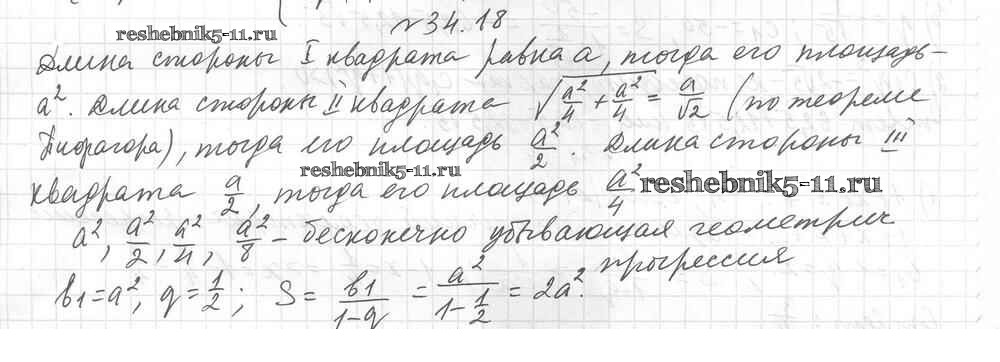 № 34.18
reshebnik5-11.ru
Длина стороны I квадрата равна a, тогда его площадь –
a². Длина стороны II квадрата √(a²/4 + a²/4) = a/√2 (по теореме
Пифагора), тогда его площадь a²/2. Длина стороны III
reshebnik5-11.ru
квадрата a/2, тогда его площадь a²/4 reshebnik5-11.ru
a², a²/2, a²/4, a²/8 – бесконечно убывающая геометрич
прогрессия
b₁ = a², q = 1/2; S = b₁/(1-q) = a²/(1 - 1/2) = 2a².